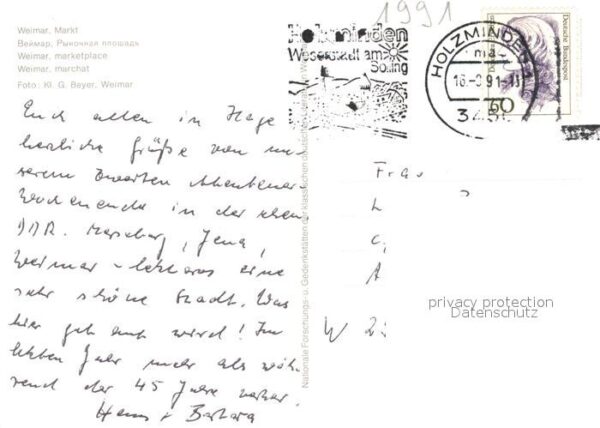 1991
Weimar, Markt
Веймар, Рыночная площадь
Weimar, marketplace
Weimar, marchat
Foto: Kl. G. Beyer, Weimar
Holzminden
Weserstadt am
Solling
HOLZMINDEN 1
-9.91-11
345
Deutsche Bundespost
60
Nationale Forschungs- u. Gedenkstätten der klassischen deutschen
Euch allen in Hage
herzliche Grüße von un-
serem zweiten Abenteuer-
Wochenende in der ehem.
DDR. Merseburg, Jena,
Weimar - letzteres eine
sehr schöne Stadt. Was
hier gebaut wird! Im
letzten Jahr mehr als wäh-
rend der 45 Jahre vorher.
Hans + Barbara
Frau
L
C
A
W 2
privacy protection
Datenschutz